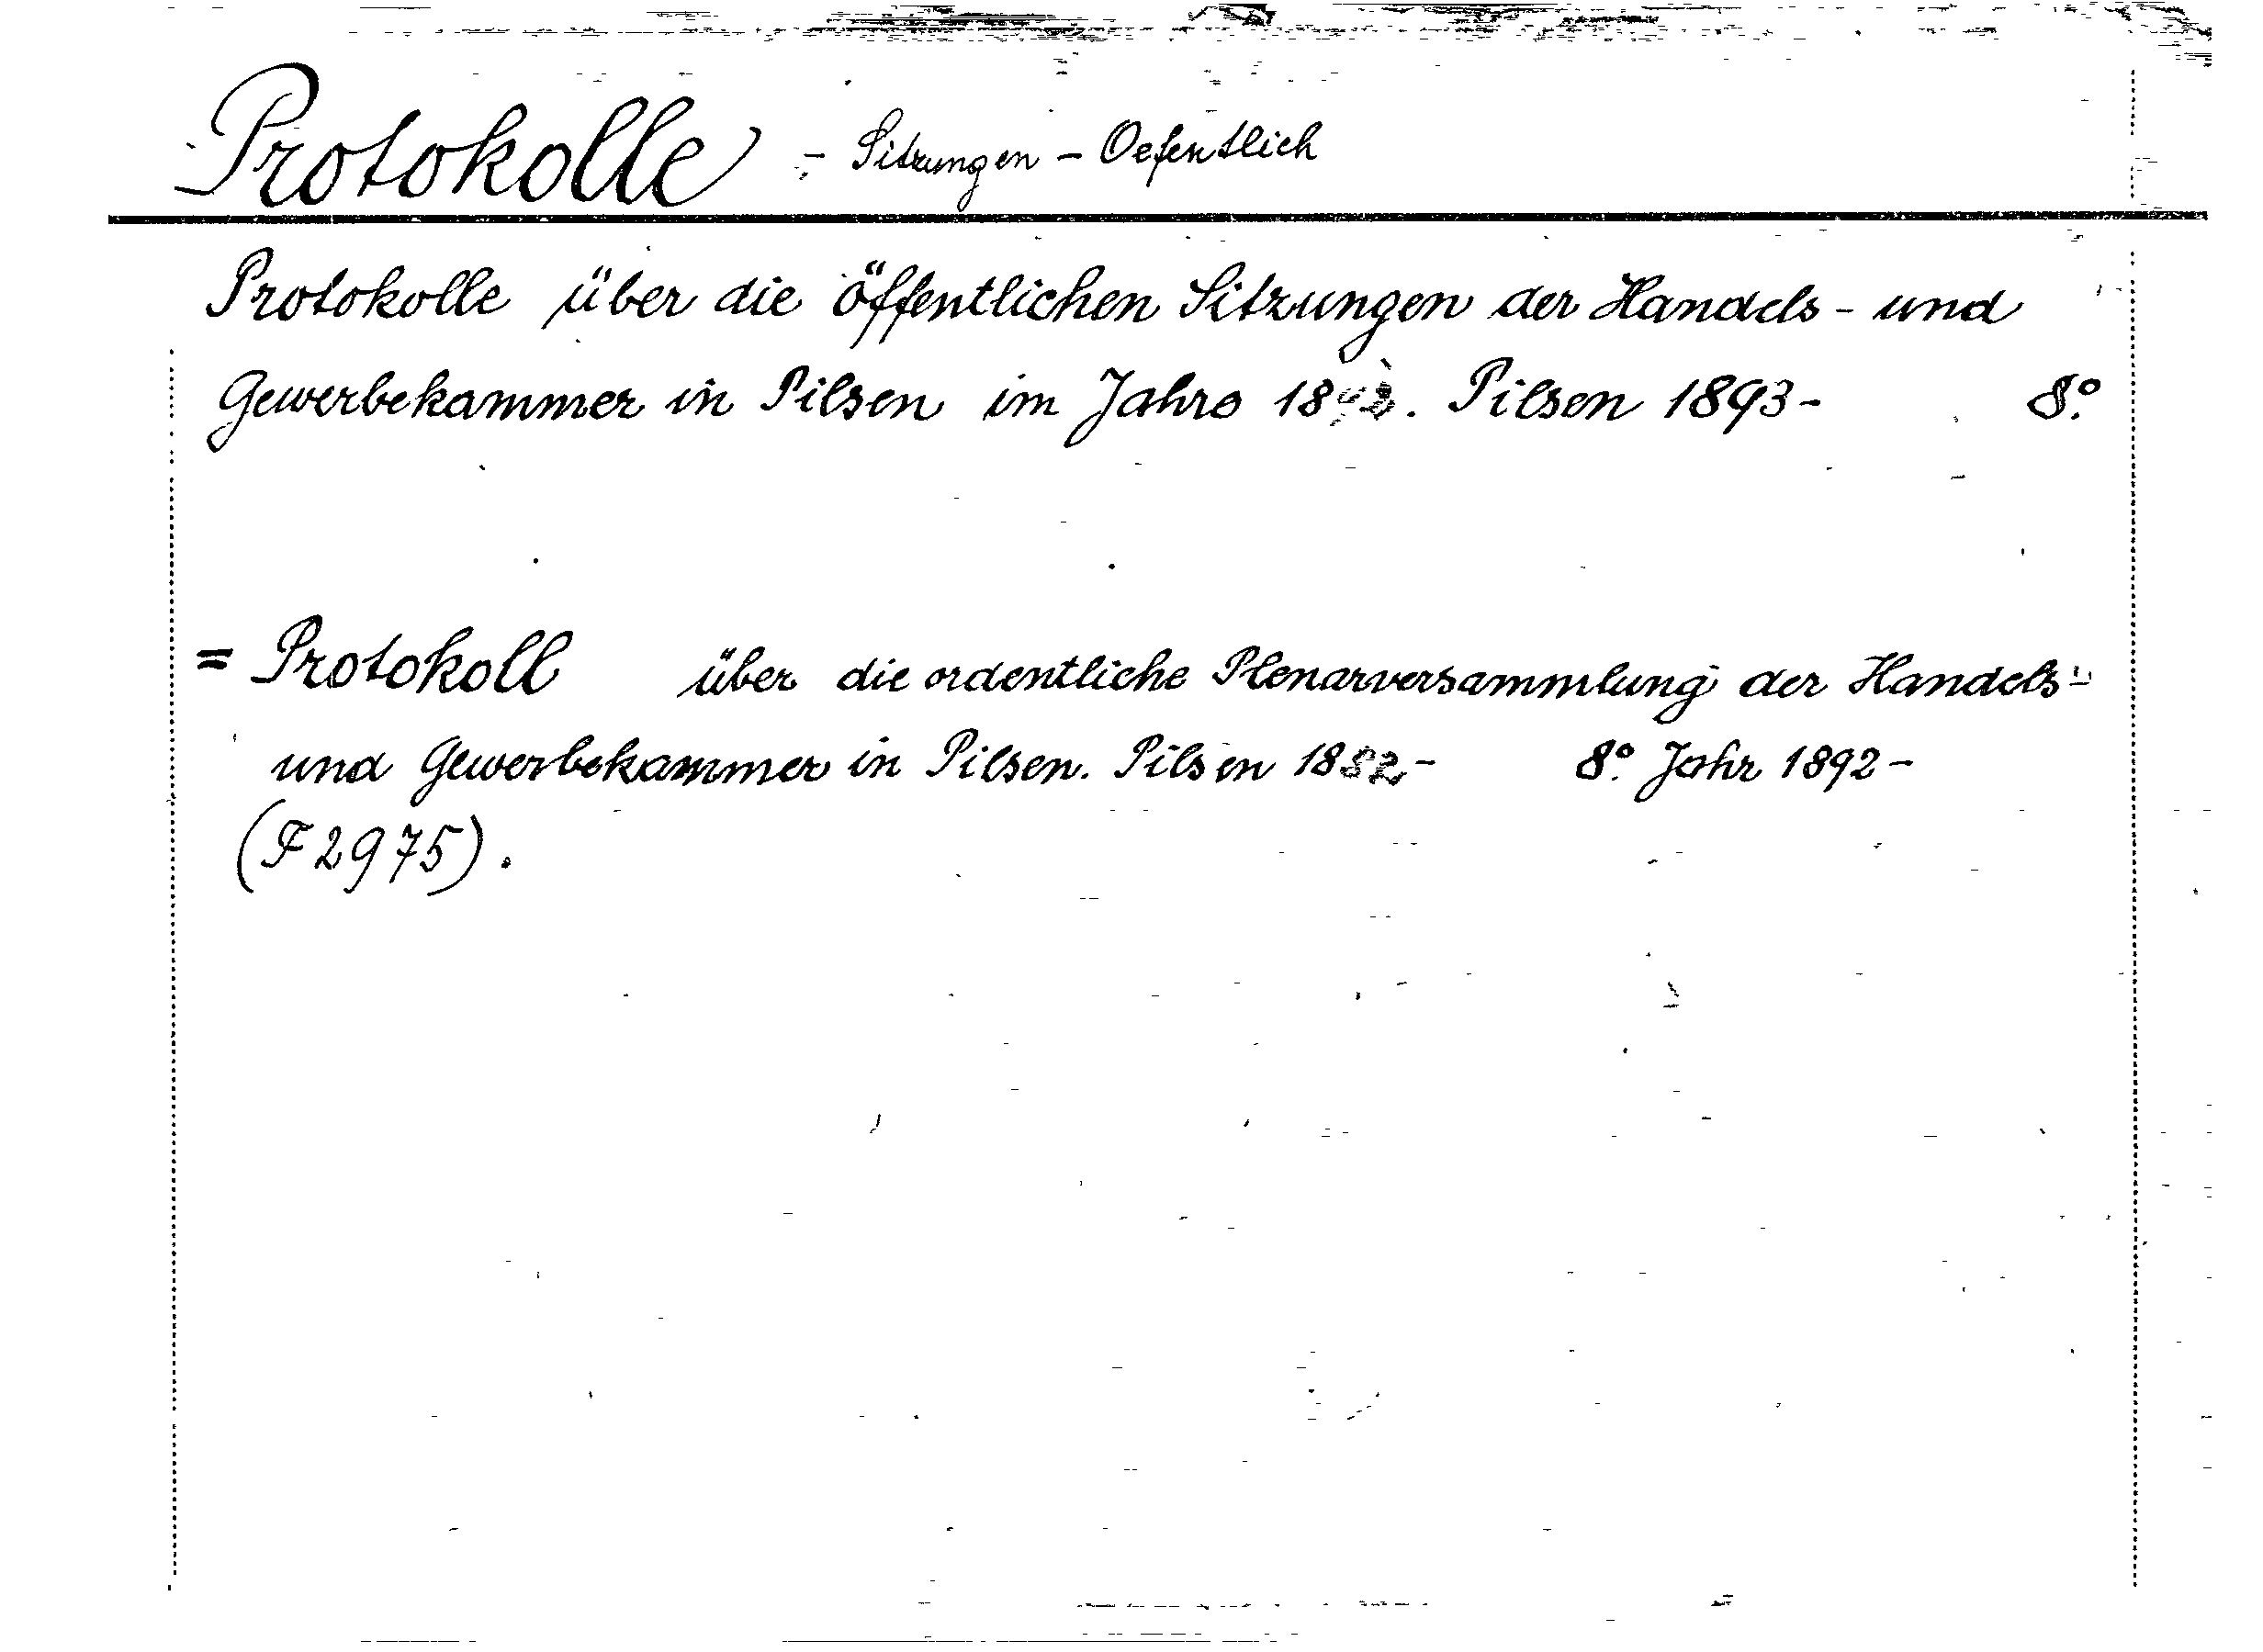 Protokolle - Sitzungen - Oefentlich
Protokolle über die öffentlichen Sitzungen der Handels- und
Gewerbekammer in Pilsen im Jahre Pilsen 1893- 8º.
= Protokoll über die ordentliche Plenarversammlung der Handels-
und Gewerbekammer in Pilsen. Pilsen 8º. Jahr 1892-
(F 2975).